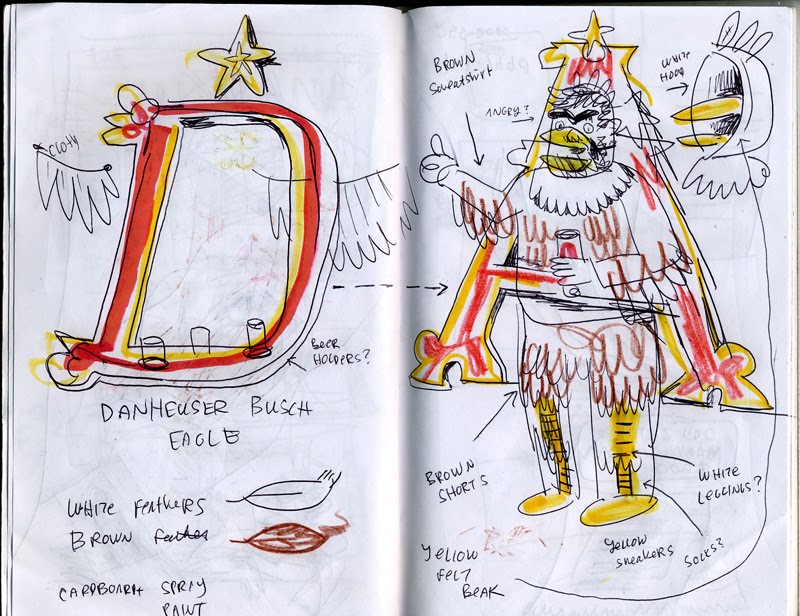 CLOTH
BEER
HOLDERS?
DANHEUSER BUSCH
EAGLE
WHITE FEATHERS
BROWN
CARDBOARD SPRAY
PAINT
BROWN
SWEATSHIRT
ANGRY?
WHITE
HOOD
BROWN
SHORTS
WHITE
LEGGINGS?
YELLOW
SNEAKERS
SOCKS?
YELLOW
FELT
BEAK